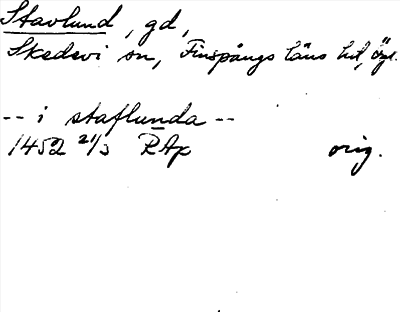 Stavlund, gd,
Skedevi sn, Finspångs läns hd, Ögl.
-- i staflunda --
1452 21/3 RAp orig.